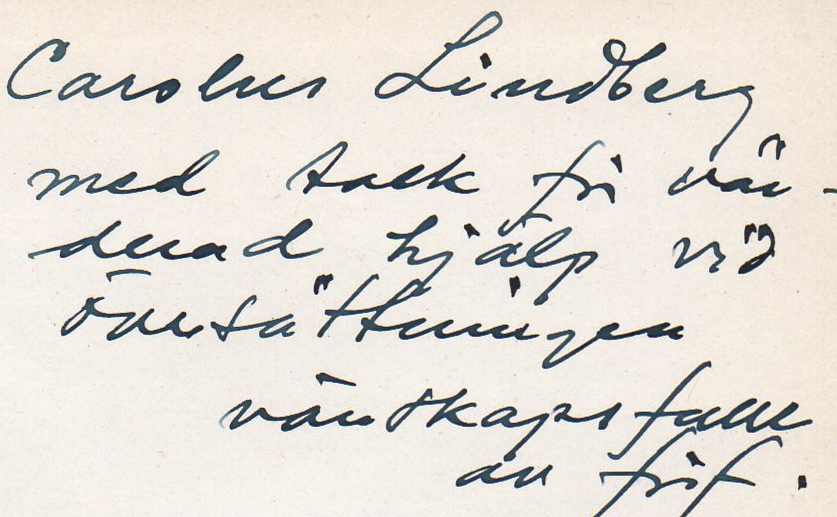 Carolus Lindberg
med tack för vär-
derad hjälp vid
översättningen
vänskapsfullt
av förf.